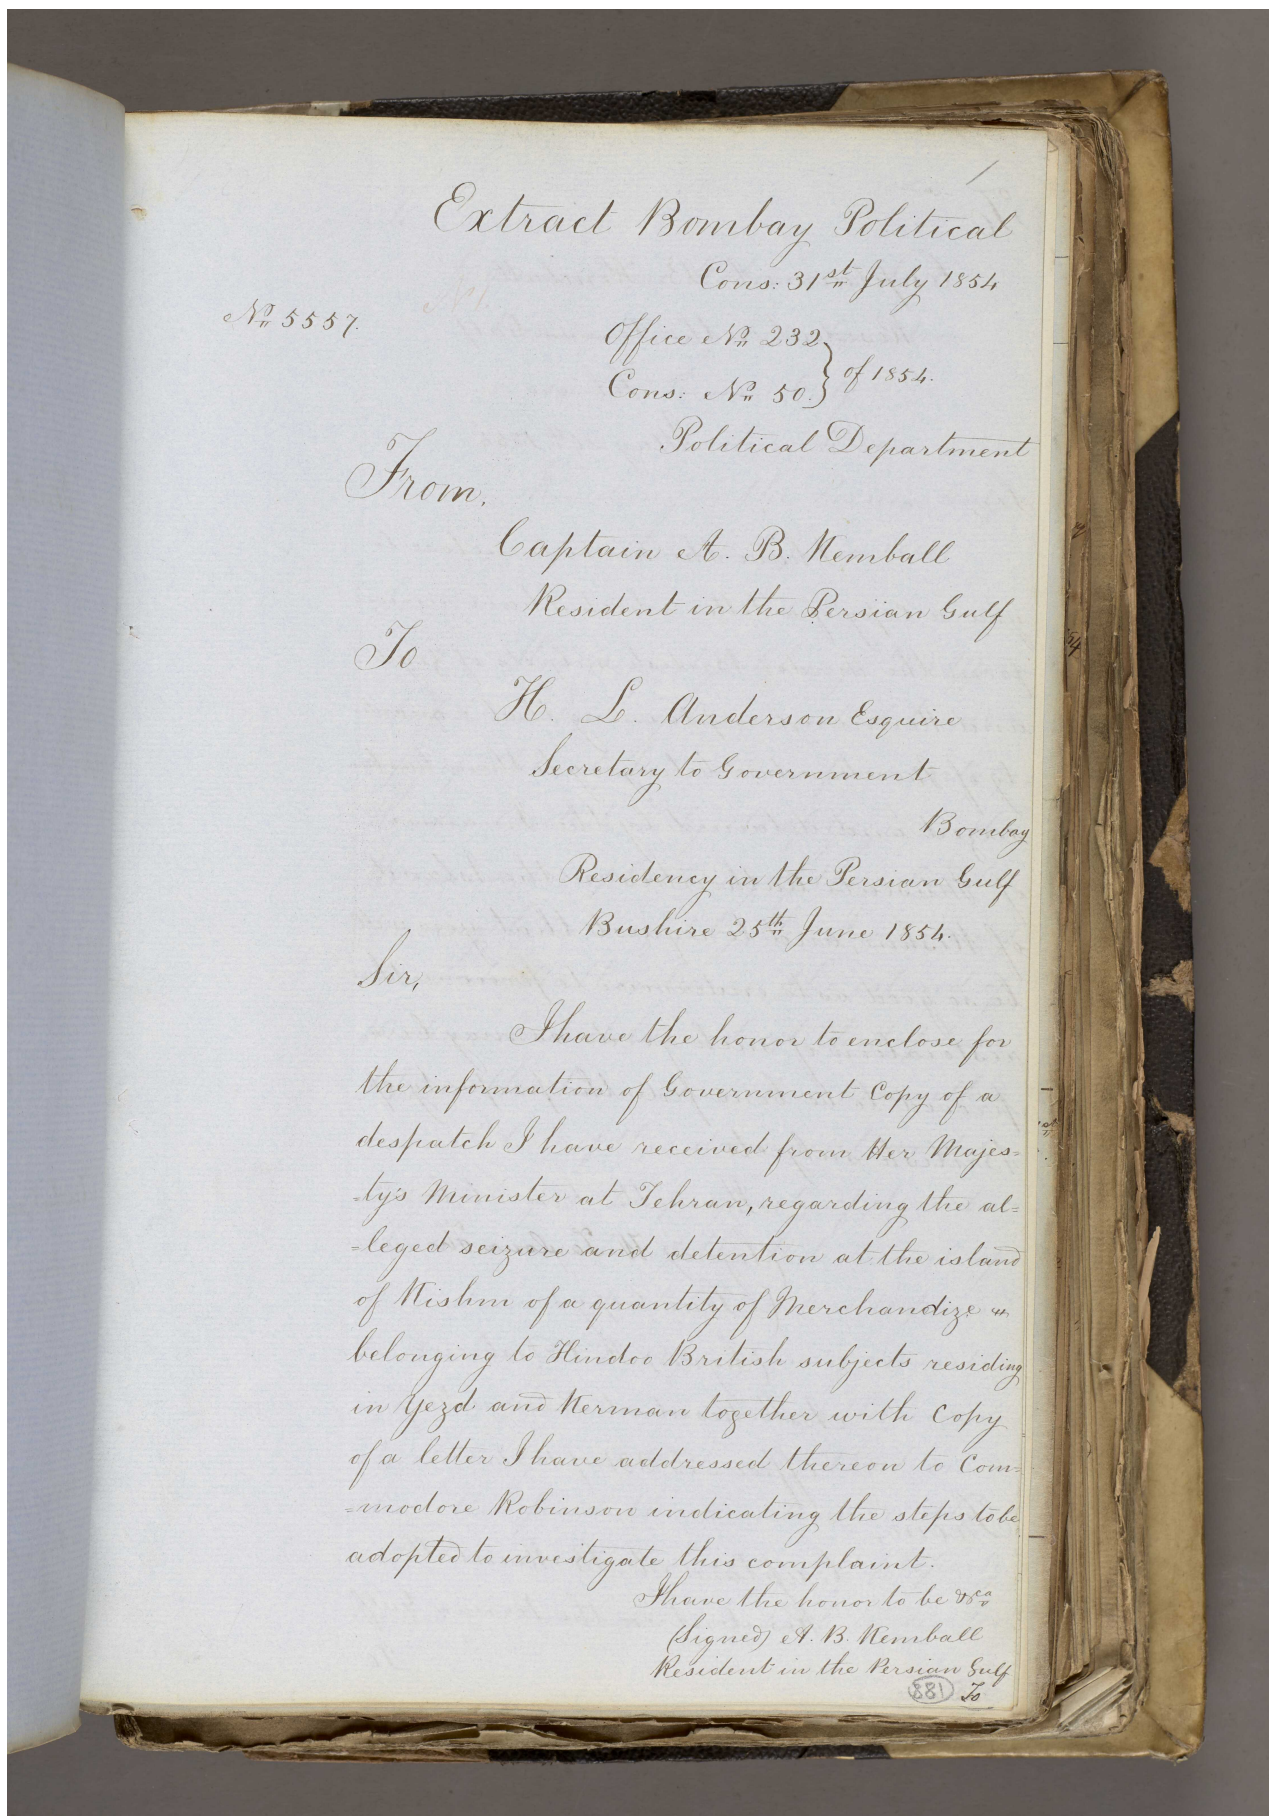 1
Extract Bombay Political
Cons: 31st July 1854
No 5557.
Office No 232
Cons: No 50. } of 1854.
Political Department
From.
Captain A. B. Kemball
Resident in the Persian Gulf
To
H. L. Anderson Esquire
Secretary to Government
Bombay
Residency in the Persian Gulf
Bushire 25th June 1854.
Sir,
I have the honor to enclose for
the information of Government Copy of a
despatch I have received from Her Majes=
=ty's Minister at Tehran, regarding the al=
=leged seizure and detention at the island
of Kishm of a quantity of Merchandize
belonging to Hindoo British subjects residing
in Yezd and Kerman together with Copy
of a letter I have addressed thereon to Com=
=modore Robinson indicating the steps to be
adopted to investigate this complaint.
I have the honor to be &ca
(Signed) A. B. Kemball
Resident in the Persian Gulf
To